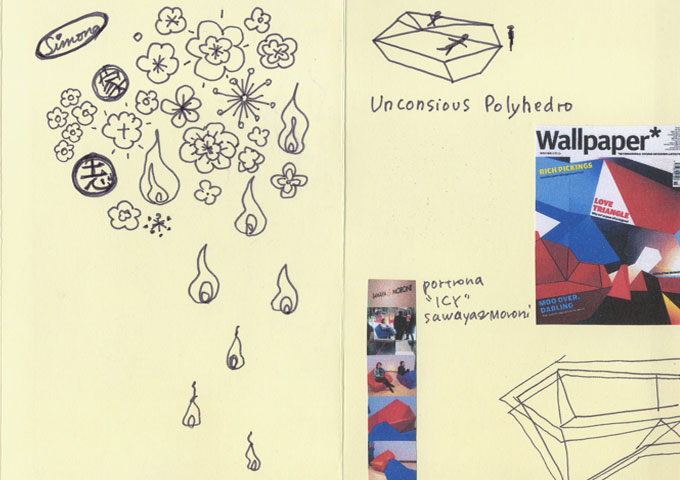 Simone
志
Unconsious Polyhedro
Wallpaper*
RICH PICKINGS
LOVE
TRIANGLE
MOO OVER,
DARLING
portrona
"ICY"
sawaya&Moroni